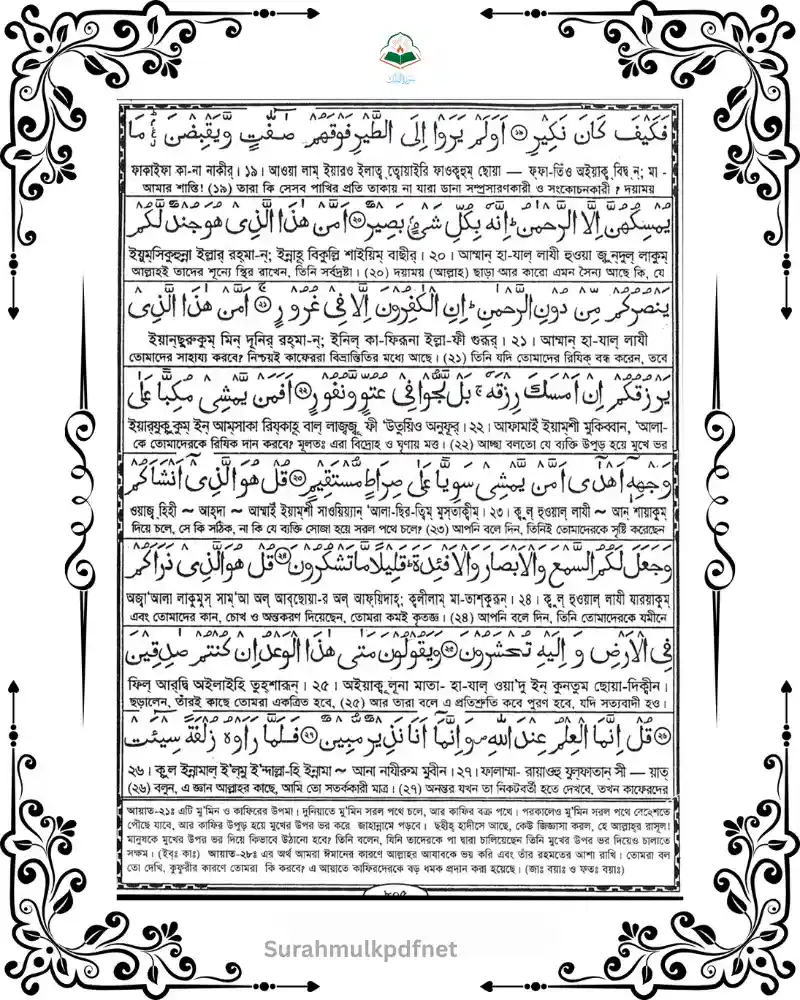 سورة الملك
فَكَيْفَ كَانَ نَكِيْرِ ⑱ اَوَلَمْ يَرَوْا اِلَى الطَّيْرِ فَوْقَهُمْ صٰٓفّٰتٍ وَّيَقْبِضْنَ ؔۘ مَا
ফাকাইফা কা-না নাকীর্। ১৯। আওয়া লাম্ ইয়ারও ইলাত্ব্ ত্বোয়াইরি ফাওক্বহুম্ ছোয়া — ফ্ফা-তিঁও অইয়াক্ব্ বিদ্ব্ ন্; মা -
আমার শাস্তি! (১৯) তারা কি সেসব পাখির প্রতি তাকায় না যারা ডানা সম্প্রসারণকারী ও সংকোচনকারী ? দয়াময়
يُمْسِكُهُنَّ اِلَّا الرَّحْمٰنُ ؕ اِنَّهٗ بِكُلِّ شَىْءٍۭ بَصِيْرٌ ⑲ اَمَّنْ هٰذَا الَّذِىْ هُوَ جُنْدٌ لَّكُمْ
ইয়ুম্সিকুহুন্না ইল্লার্ রহ্মা-ন্; ইন্নাহূ বিকুল্লি শাইয়িম্ বাছীর্। ২০। আম্মান্ হা-যাল্ লাযী হুওয়া জু্ন্দুল্ লাকুম্
আল্লাহই তাদের শূন্যে স্থির রাখেন, তিনি সর্বদ্রষ্টা। (২০) দয়াময় (আল্লাহ) ছাড়া আর কারো এমন সৈন্য আছে কি, যে
يَنْصُرُكُمْ مِّنْ دُوْنِ الرَّحْمٰنِ ؕ اِنِ الْكٰفِرُوْنَ اِلَّا فِىْ غُرُوْرٍ ⑳ اَمَّنْ هٰذَا الَّذِىْ
ইয়ান্ছুরুকুম্ মিন্ দূনির্ রহ্মা-ন্; ইনিল্ কা-ফিরূনা ইল্লা-ফী গুরূর্। ২১। আম্মান্ হা-যাল্ লাযী
তোমাদের সাহায্য করবে? নিশ্চয়ই কাফেররা বিভ্রান্তিতির মধ্যে আছে। (২১) তিনি যদি তোমাদের রিযিক্ বন্ধ করেন, তবে
يَرْزُقُكُمْ اِنْ اَمْسَكَ رِزْقَهٗ ۚ بَلْ لَّجُّوْا فِىْ عُتُوٍّ وَّنُفُوْرٍ ㉑ اَفَمَنْ يَّمْشِىْ مُكِبًّا عَلٰى
ইয়ার্যুক্বু কুম্ ইন্ আম্সাকা রিয্ক্বাহূ বাল্ লাজ্জু্ ফী 'উতুয়্যিঁও অনুফূর্। ২২। আফামাইঁ ইয়াম্শী মুকিব্বান্, 'আলা-
কে তোমাদেরকে রিযিক দান করবে? মূলতঃ এরা বিদ্রোহ ও ঘৃণায় মত্ত। (২২) আচ্ছা বলতো যে ব্যক্তি উপুড় হয়ে মুখে ভর
وَجْهِهٖۤ اَهْدٰٓى اَمَّنْ يَّمْشِىْ سَوِيًّا عَلٰى صِرَاطٍ مُّسْتَقِيْمٍ ㉒ قُلْ هُوَ الَّذِىْۤ اَنْشَاَكُمْ
ওয়াজ্ব্ হিহী ~ আহ্দা ~ আম্মাইঁ ইয়াম্শী সাওয়িয়্যান্ 'আলা-ছির-ত্বিম্ মুস্তাক্বীম্। ২৩। কু্ল্ হুওয়াল্ লাযী ~ আন্ শায়াকুম্
দিয়ে চলে, সে কি সঠিক, না কি যে ব্যক্তি সোজা হয়ে সরল পথে চলে? (২৩) আপনি বলে দিন, তিনিই তোমাদেরকে সৃষ্টি করেছেন
وَجَعَلَ لَكُمُ السَّمْعَ وَالْاَبْصَارَ وَالْاَفْـِٕدَةَ ؕ قَلِيْلًا مَّا تَشْكُرُوْنَ ㉓ قُلْ هُوَ الَّذِىْ ذَرَاَكُمْ
অজ্বা'আলা লাকুমুস্ সাম্'আ অল্ আব্ছোয়া-র অল্ আফ্য়িদাহ্; ক্বলীলাম্ মা-তাশ্কুরূন্। ২৪। কু্ল্ হুওয়াল্ লাযী যারয়াকুম্
এবং তোমাদের কান, চোখ ও অন্তকরণ দিয়েছেন, তোমরা কমই কৃতজ্ঞ। (২৪) আপনি বলে দিন, তিনি তোমাদেরকে যমীনে
فِى الْاَرْضِ وَ اِلَيْهِ تُحْشَرُوْنَ ㉔ وَيَقُوْلُوْنَ مَتٰى هٰذَا الْوَعْدُ اِنْ كُنْتُمْ صٰدِقِيْنَ
ফিল্ আর্দ্বি অইলাইহি তুহ্শারূন্। ২৫। অইয়াক্বূ লূনা মাতা- হা-যাল্ ওয়া'দু ইন্ কুন্তুম্ ছোয়া-দিক্বীন্।
ছড়ালেন, তাঁরই কাছে তোমরা একত্রিত হবে, (২৫) আর তারা বলে এ প্রতিশ্রুতি কবে পুরণ হবে, যদি সত্যবাদী হও।
㉕ قُلْ اِنَّمَا الْعِلْمُ عِنْدَ اللّٰهِ ۪ وَاِنَّمَاۤ اَنَا نَذِيْرٌ مُّبِيْنٌ ㉖ فَلَمَّا رَاَوْهُ زُلْفَةً سِيْٓـئَتْ
২৬। কু্ল ইন্নামাল্ ই'ল্মু ই'ন্দাল্লা-হি ইন্নামা ~ আনা নাযীরুম মুবীন্। ২৭। ফালাম্মা- রায়াওহু যু্ল্ফাতান্ সী — য়াত্
(২৬) বলুন, এ জ্ঞান আল্লাহর কাছে, আমি তো সতর্ককারী মাত্র। (২৭) অনন্তর যখন তা নিকটবর্তী হতে দেখবে, তখন কাফেরদের
আয়াত-২১ঃ এটি মু'মিন ও কাফিরের উপমা। দুনিয়াতে মু'মিন সরল পথে চলে, আর কাফির বক্র পথে। পরকালেও মু'মিন সরল পথে বেহেশতে
পৌঁছে যাবে, আর কাফির উপুড় হয়ে মুখের উপর ভর করে জাহান্নামে পড়বে। ছহীহ্ হাদীসে আছে, কেউ জিজ্ঞাসা করল, হে আল্লাহর রাসূল!
মানুষকে মুখের উপর ভর দিয়ে কিভাবে উঠানো হবে? তিনি বলেন, যিনি তাদেরকে পা দ্বারা চালিয়েছেন তিনি মুখের উপর ভর দিয়েও চালাতে
সক্ষম। (ইবঃ কাঃ) আয়াত-২৮ঃ এর অর্থ আমরা ঈমানের কারণে আল্লাহর আযাবকে ভয় করি এবং তাঁর রহমতের আশা রাখি। তোমরা বল
তো দেখি, কুফুরীর কারণে তোমরা কি করবে? এ আয়াতে কাফিরদেরকে বড় ধমক প্রদান করা হয়েছে। (জাঃ বয়াঃ ও ফতঃ বয়াঃ)
Surahmulkpdfnet